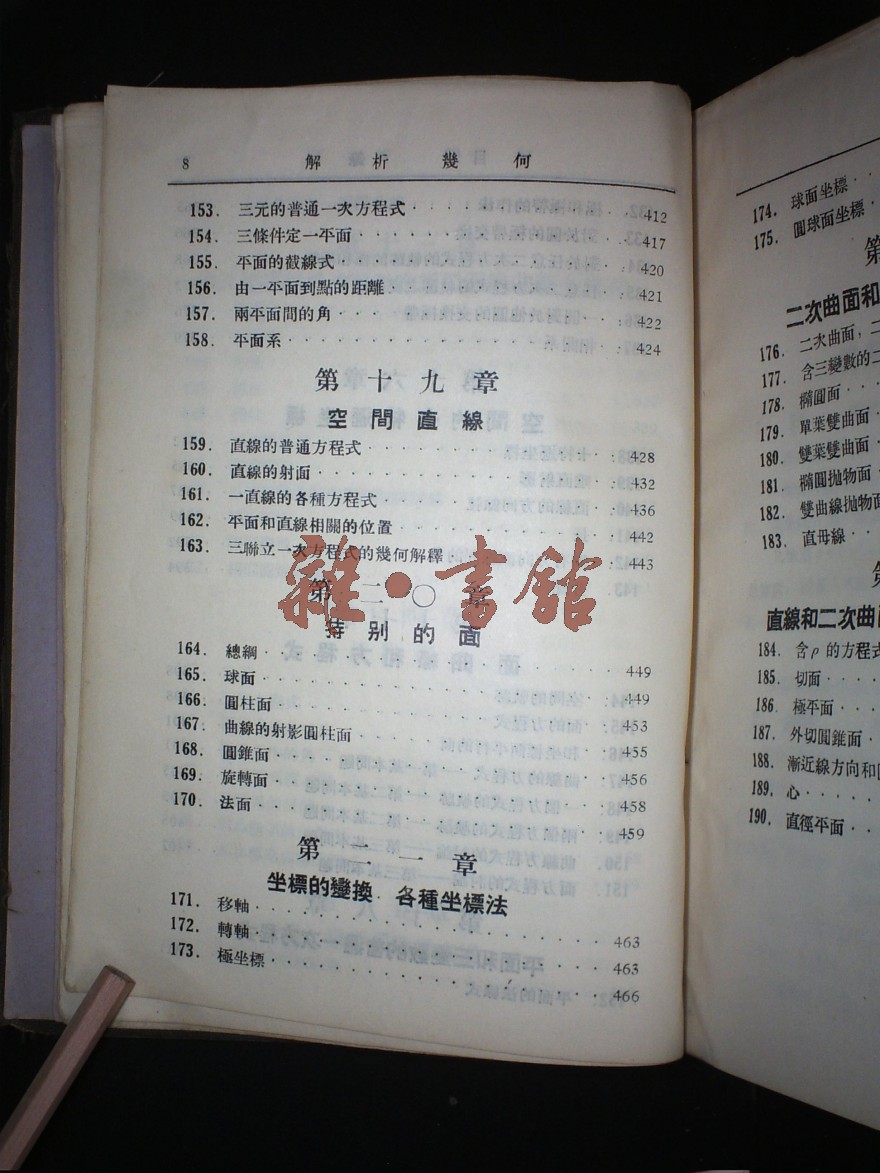 8 解析幾何
153. 三元的普通一次方程式 412
154. 三條件定一平面 417
155. 平面的截線式 420
156. 由一平面到點的距離 421
157. 兩平面間的角 422
158. 平面系 424
第十九章
空間直線
159. 直線的普通方程式 428
160. 直線的射面 432
161. 一直線的各種方程式 436
162. 平面和直線相關的位置 442
163. 三聯立一次方程式的幾何解釋 443
雜·書館
第二〇章
特別的面
164. 總綱 449
165. 球面 449
166. 圓柱面 453
167. 曲線的射影圓柱面 455
168. 圓錐面 456
169. 旋轉面 458
170. 法面 459
第二一章
坐標的變換 各種坐標法
171. 移軸 463
172. 轉軸 463
173. 極坐標 466
174. 球面坐標
175. 圓球面坐標
第
二次曲面和
176. 二次曲面,二
177. 含三變數的二
178. 橢圓面
179. 單葉雙曲面
180. 雙葉雙曲面
181. 橢圓拋物面
182. 雙曲線拋物面
183. 直母線
直線和二次曲
184. 含ρ的方程式
185. 切面
186. 極平面
187. 外切圓錐面
188. 漸近線方向和
189. 心
190. 直徑平面